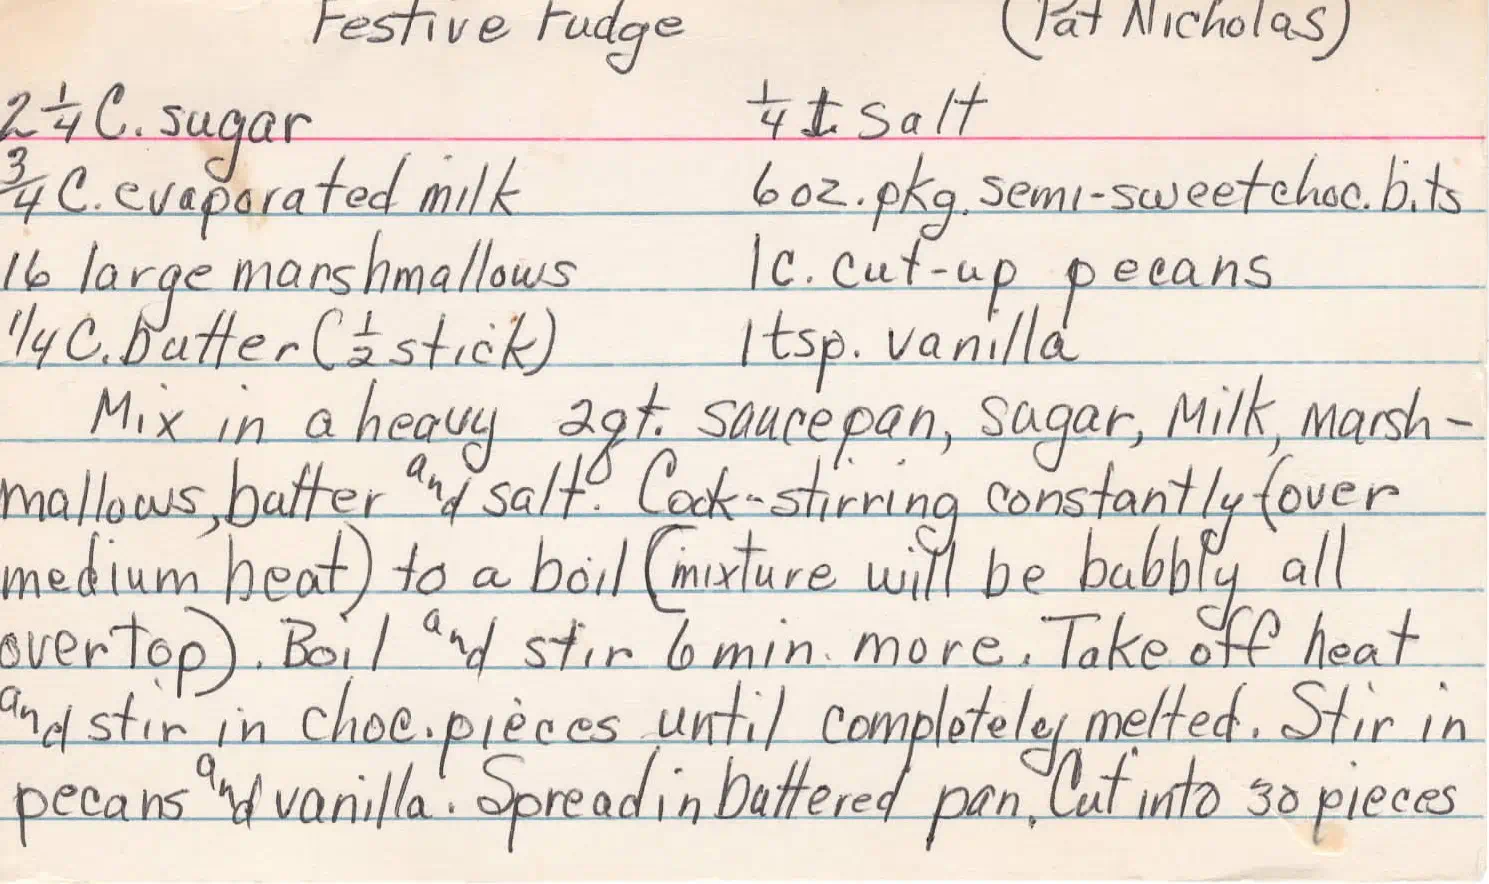 Festive Fudge (Pat Nicholas)
2 1/4 C. sugar 1/4 t salt
3/4 C. evaporated milk 6 oz. pkg. semi-sweet choc. bits
16 large marshmallows 1 c. cut-up pecans
1/4 C. butter (1/2 stick) 1 tsp. vanilla
Mix in a heavy 2 qt. saucepan, sugar, milk, marsh-
mallows, butter and salt. Cook-stirring constantly (over
medium heat) to a boil (mixture will be bubbly all
over top). Boil and stir 6 min. more. Take off heat
and stir in choc. pieces until completely melted. Stir in
pecans and vanilla. Spread in buttered pan. Cut into 30 pieces